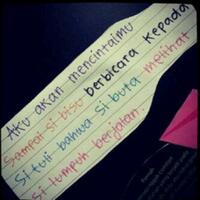 Aku akan mencintaimu
Sampai si bisu berbicara kepada
Si tuli bahwa si buta melihat
si lumpuh berjalan.